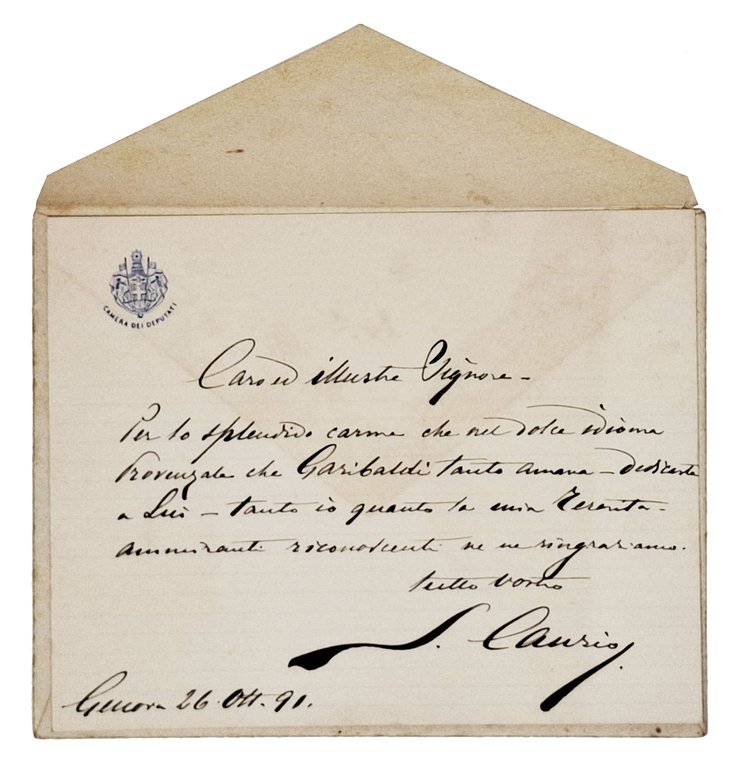 CAMERA DEI DEPUTATI
Caro ed illustre Signore –
Per lo splendido carme che nel dolce idioma
Provenzale che Garibaldi tanto amava – dedicaste
a Lui – tanto io quanto la mia Teresita –
ammiranti riconoscenti ve ne ringraziamo.
tutto vostro
S. Canzio
Genova 26. Ott. 91.